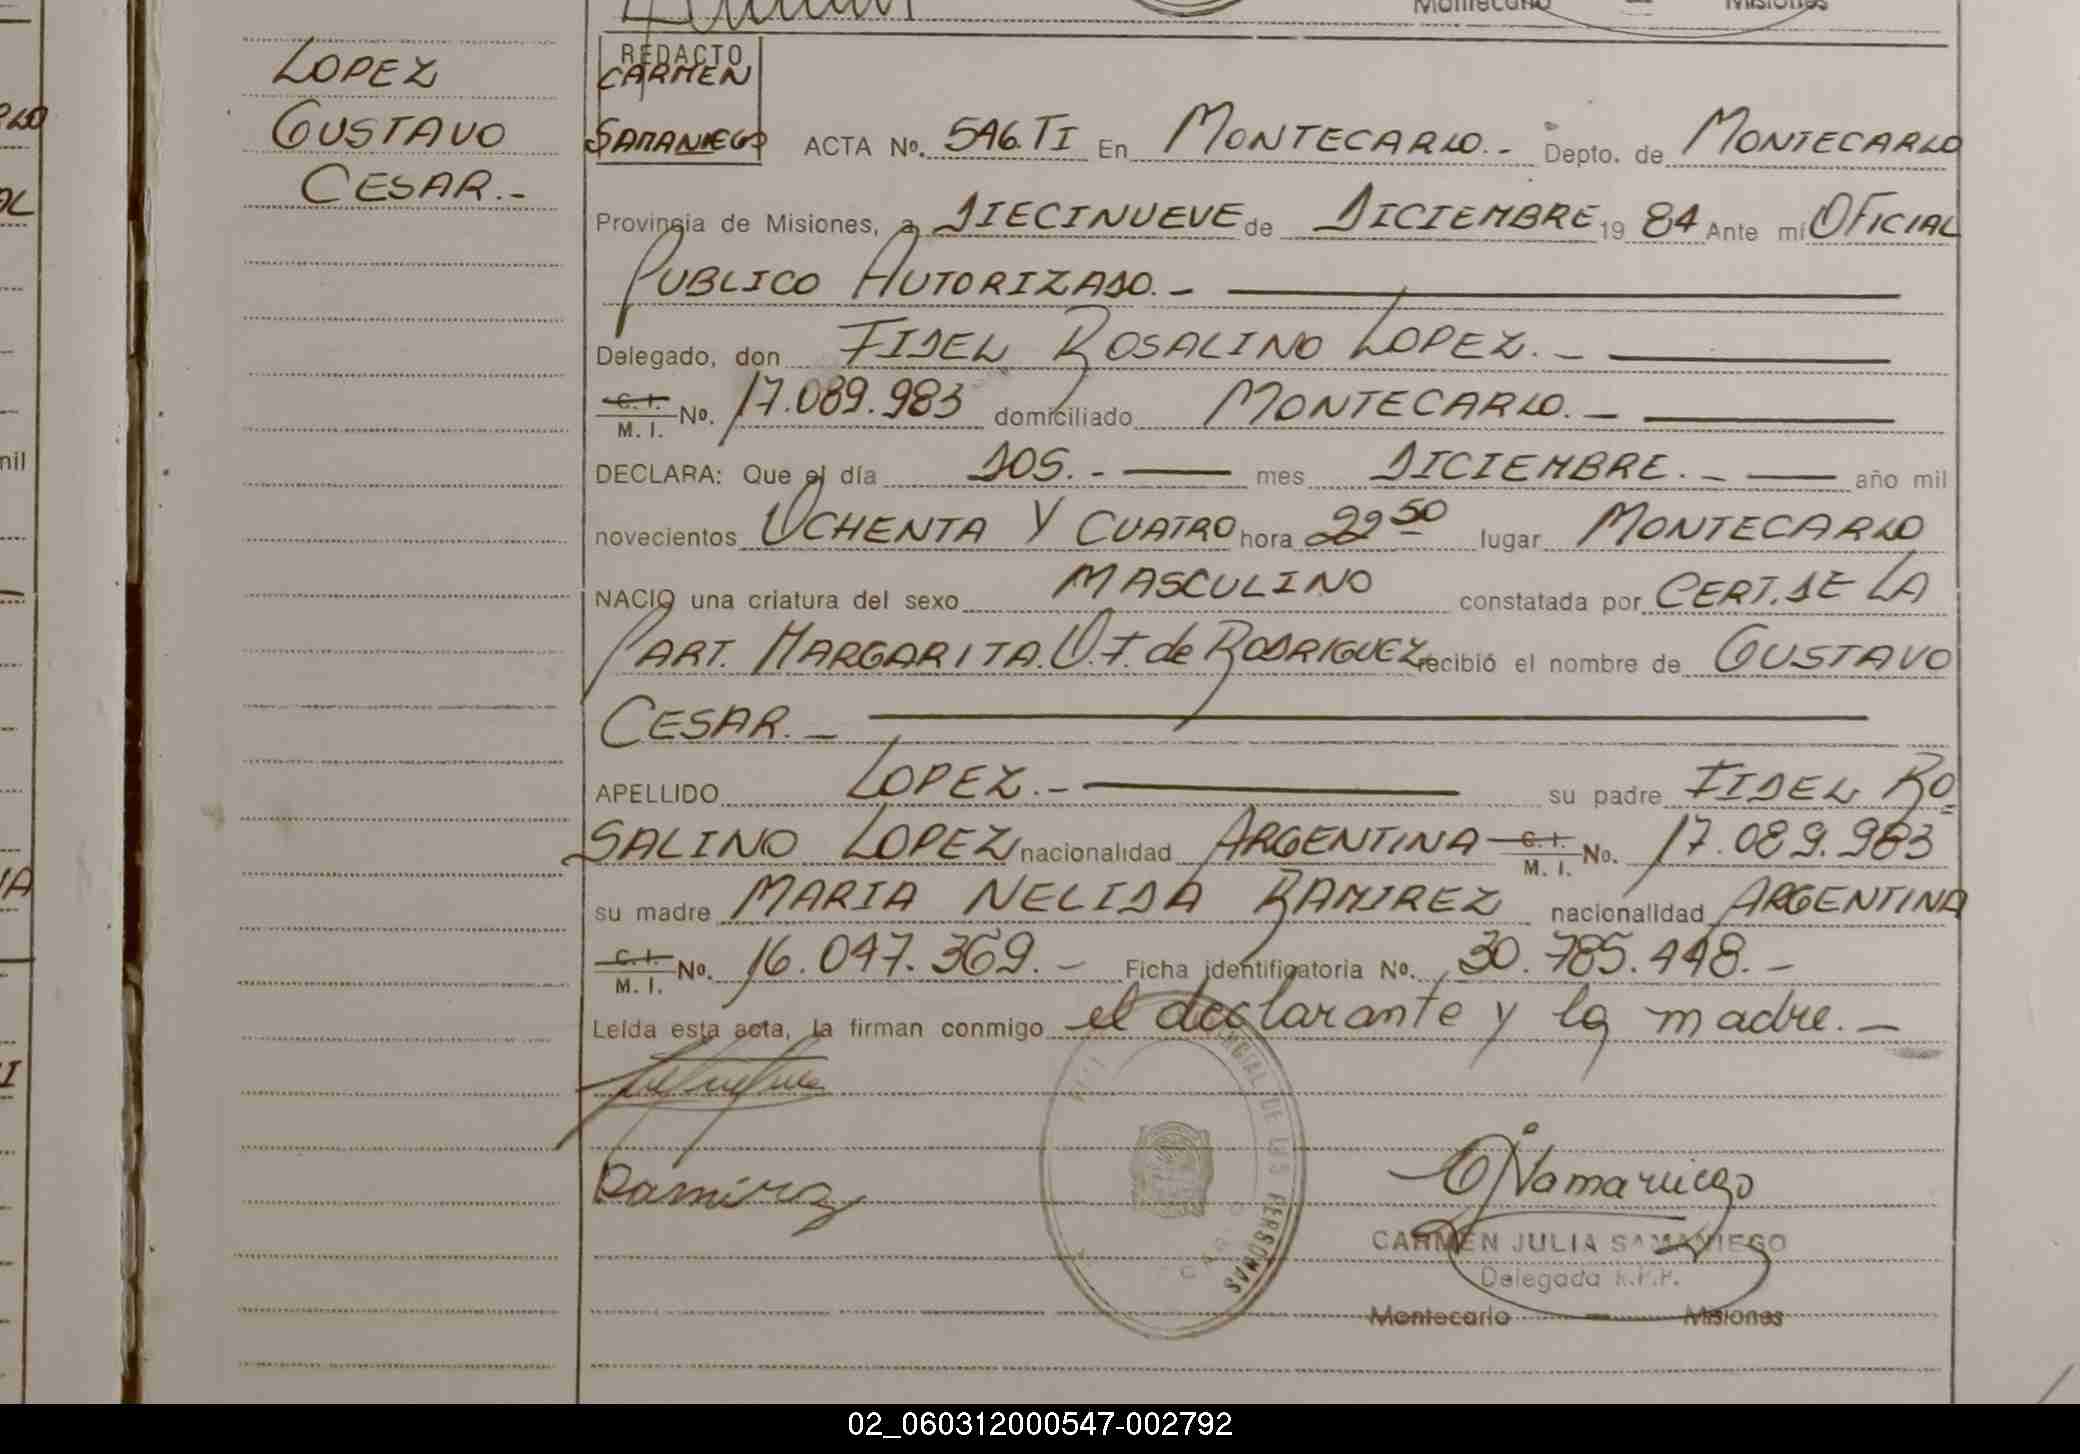 Montecarlo Misiones
LOPEZ
GUSTAVO
CESAR.-
REDACTO
CARMEN
SAMANIEGO
ACTA No. 546.TI En MONTECARLO.- Depto. de MONTECARLO
Provincia de Misiones, a DIECINUEVE de DICIEMBRE 19 84 Ante mí OFICIAL
PUBLICO AUTORIZADO.-
Delegado, don FIDEL ROSALINO LOPEZ.-
C. I.
M. I. No. 17.089.983 domiciliado MONTECARLO.-
DECLARA: Que el día DOS.- mes DICIEMBRE.- año mil
novecientos OCHENTA Y CUATRO hora 22 50 lugar MONTECARLO
NACIO una criatura del sexo MASCULINO constatada por CERT. DE LA
PART. MARGARITA. O.F. de RODRIGUEZ recibió el nombre de GUSTAVO
CESAR.-
APELLIDO LOPEZ.- su padre FIDEL RO=
SALINO LOPEZ nacionalidad ARGENTINA C. I.
M. I. No. 17.089.983
su madre MARIA NELIDA RAMIREZ nacionalidad ARGENTINA
C. I.
M. I. No. 16.047.369.- Ficha identificatoria No. 30.785.448.-
Leída esta acta, la firman conmigo el declarante y la madre.-
Ramirez
CJSamaniego
CARMEN JULIA SAMANIEGO
Delegada R.P.P.
Montecarlo - Misiones
DE LAS PERSONAS
02_060312000547-002792